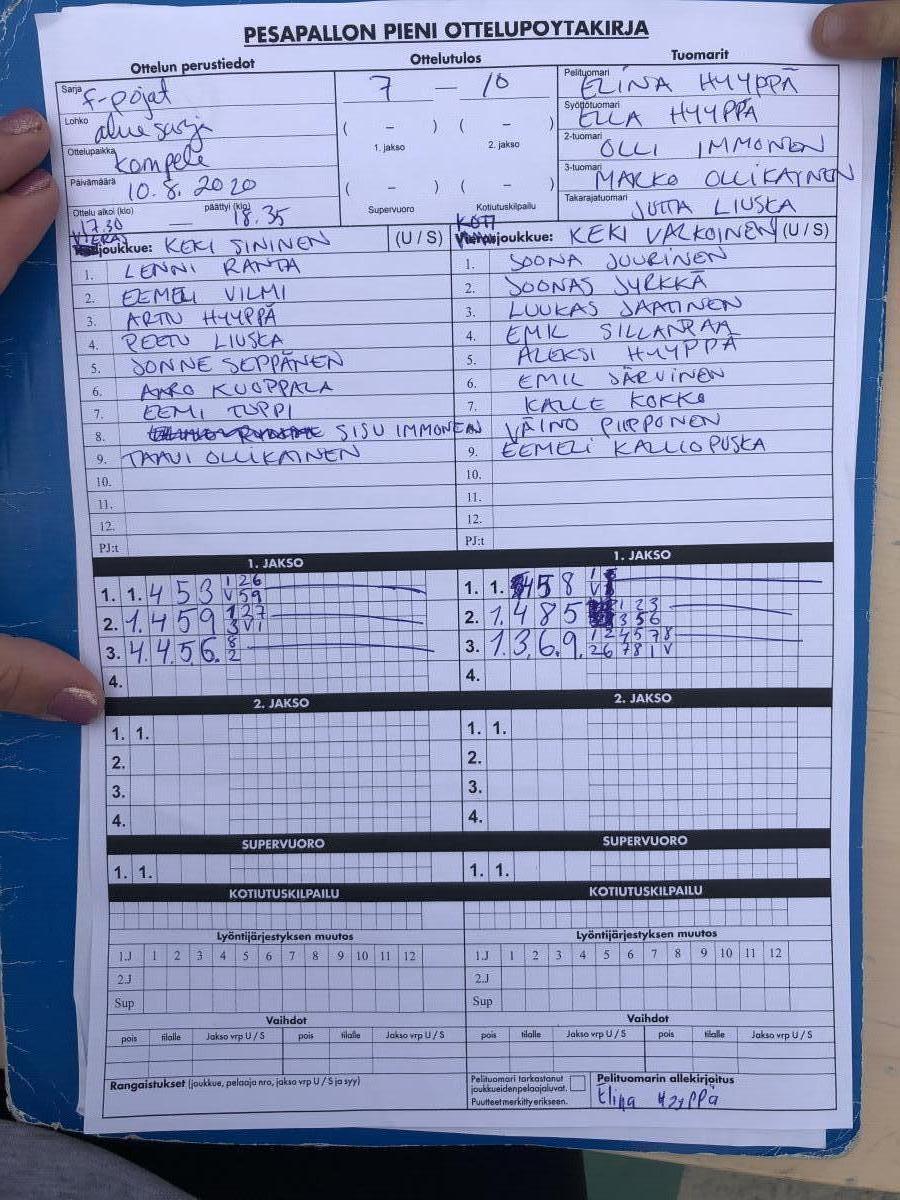 PESAPALLON PIENI OTTELUPOYTAKIRJA
Ottelun perustiedot Ottelutulos Tuomarit
Sarja f-pojat
Lohko alue sarja
Ottelupaikka Kempele
Päivämäärä 10.8.2020
Ottelu alkoi (klo) 17.30 — päättyi (klo) 18.35
7 — 10
( - ) ( - )
1. jakso 2. jakso
( - ) ( - )
Supervuoro Kotiutuskilpailu
Pelituomari ELINA HYYPPÄ
Syöttötuomari ELLA HYYPPÄ
2-tuomari OLLI IMMONEN
3-tuomari MARKO OLLIKAINEN
Takarajatuomari JUTTA LIUSKA
VIERAS joukkue: KEKI SININEN (U / S)
1. LENNI RANTA
2. EEMELI VILMI
3. ARTU HYYPPÄ
4. PEETU LIUSKA
5. JONNE SEPPÄNEN
6. AARO KUOPPALA
7. EEMI TUPPI
8. SISU IMMONEN
9. TAAVI OLLIKAINEN
10.
11.
12.
PJ:t
KOTI joukkue: KEKI VALKOINEN (U / S)
1. JOONA JUURINEN
2. JOONAS JYRKKÄ
3. LUUKAS JAATINEN
4. EMIL SILLANPAA
5. ALEKSI HYYPPÄ
6. EMIL JÄRVINEN
7. KALLE KOKKO
8. VÄINO PIIPPONEN
9. EEMELI KALLIOPUSKA
10.
11.
12.
PJ:t
1. JAKSO 1. JAKSO
1. 1. 4 5 3 1 2 6
V 5 9
2. 1. 4 5 9 1 2 7
3 V 1
3. 4. 4. 5 6. 8
2
4.
1. 1. 4 5 8
2. 1. 4 8 5 1 2 3
3 5 6
3. 1. 3. 6. 9. 1 2 4 5 7 8
2 6 7 8 1 V
4.
2. JAKSO 2. JAKSO
1. 1. 1. 1.
2. 2.
3. 3.
4. 4.
SUPERVUORO SUPERVUORO
1. 1. 1. 1.
KOTIUTUSKILPAILU KOTIUTUSKILPAILU
Lyöntijärjestyksen muutos Lyöntijärjestyksen muutos
1.J 1 2 3 4 5 6 7 8 9 10 11 12 1.J 1 2 3 4 5 6 7 8 9 10 11 12
2.J 2.J
Sup Sup
Vaihdot Vaihdot
pois tilalle Jakso vrp U / S pois tilalle Jakso vrp U / S pois tilalle Jakso vrp U / S pois tilalle Jakso vrp U / S
Rangaistukset (joukkue, pelaaja nro, jakso vrp U / S ja syy)
Pelituomari tarkastanut
joukkueidenpelaajaluvat.
Puutteet merkitty erikseen.
Pelituomarin allekirjoitus
Elina Hyyppä